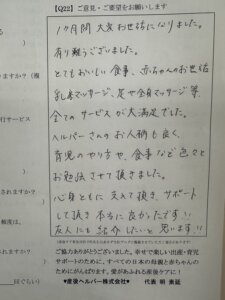 【Q22】ご意見・ご要望をお願いします
1ヶ月間 大変お世話になりました。
有り難うございました。
とてもおいしい食事、赤ちゃんのお世話
乳房マッサージ、足や全身マッサージ等
全てのサービスが大満足でした。
ヘルパーさんのお人柄も良く、
育児のやり方や、食事など色々と
お勉強させて頂きました。
心身ともに支えて頂き、サポート
して頂き本当に良かったです!!
友人にも紹介したいと思います!!
ご協力ありがとうございました。幸せで楽しい出産・育児
サポートのために、すべての日本の母親と赤ちゃんの
ためにがんばります。愛があふれる産後ケアに!
♥産後ヘルパー株式会社♥ 代表 明 素延
ますか?(複
)
行サービス
)
されますか?
)
頻度は、
)
されますか?
)
回ぐらい)